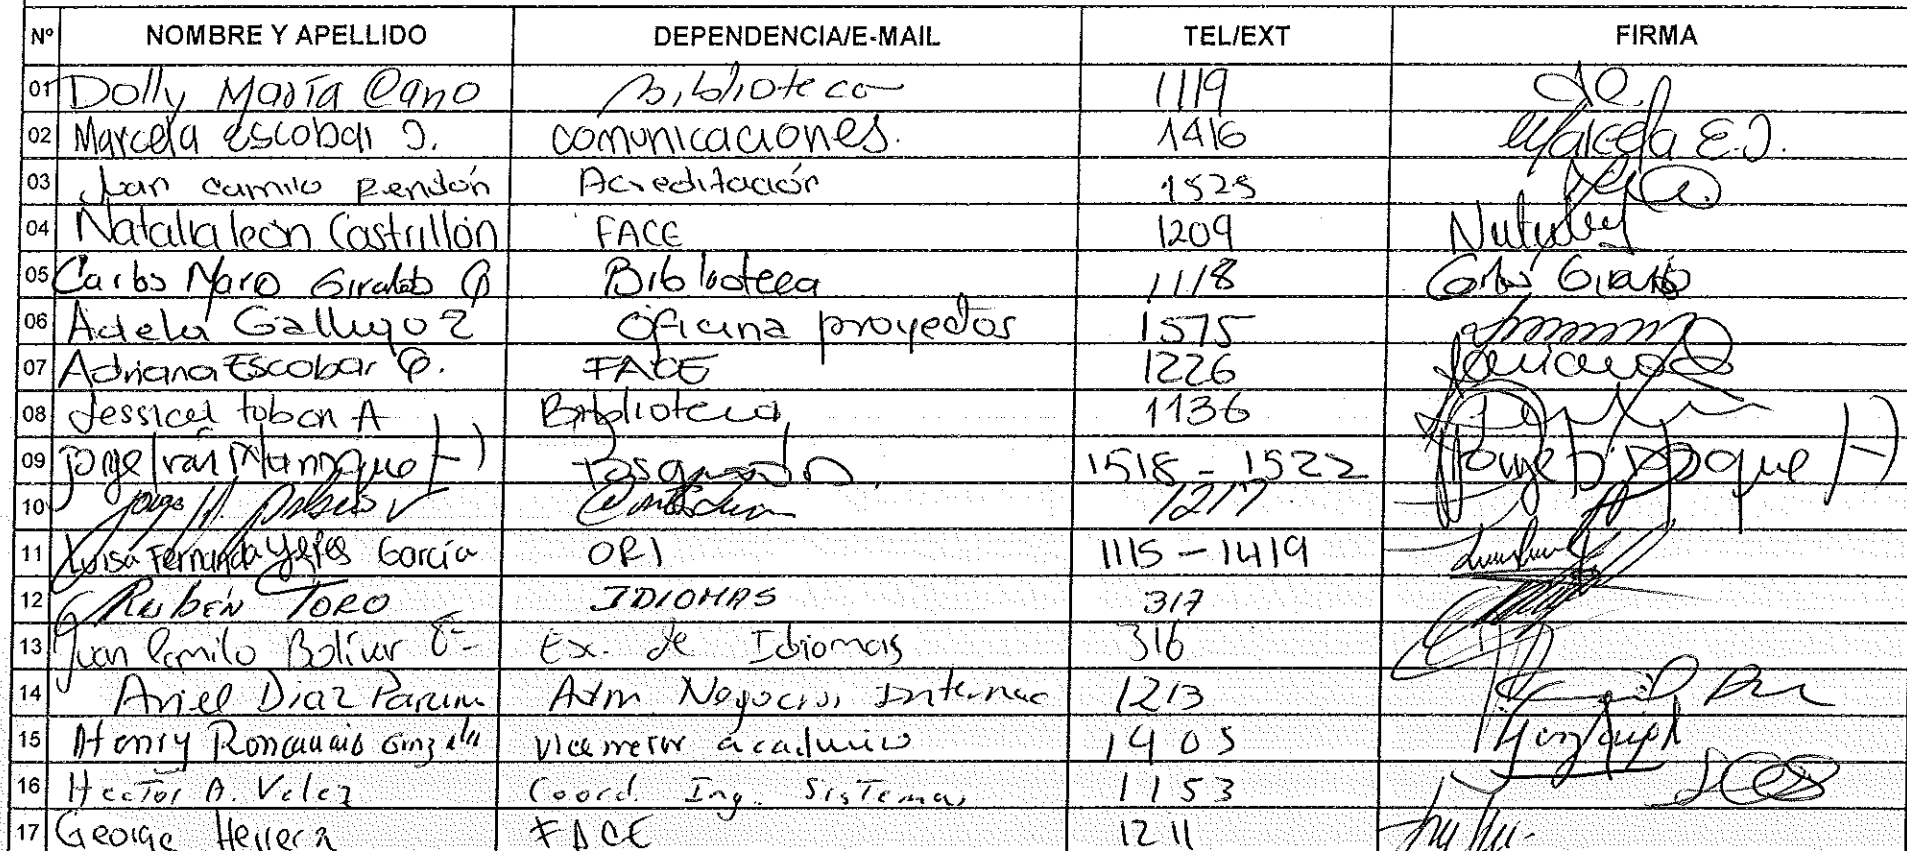 Nº NOMBRE Y APELLIDO DEPENDENCIA/E-MAIL TEL/EXT FIRMA
01 Dolly María Cano Biblioteca 1119
02 Marcela Escobar J. comunicaciones. 1416 Marcela E.J.
03 Juan camilo Rendón Acreditación 1525
04 Natalia león Castrillón FACE 1209
05 Carlos Mario Giraldo Q Biblioteca 1118 Carlos Giraldo
06 Adela Gallego Z Oficina proyectos 1575
07 Adriana Escobar Q. FACE 1226
08 Jessica tobon A Biblioteca 1136
09 Jorge Iván Manrique H 1518 - 1522
10 1217
11 Luisa Fernanda Yepes García ORI 1115 - 1419
12 Rubén Toro IDIOMAS 317
13 Juan Camilo Bolívar Ex. de Idiomas 316
14 Ariel Diaz Adm. Negocios Internac 1213
15 Henry Roncancio Gonzalez vicerrector academico 1405
16 Hector A. Velez Coord. Ing. Sistemas 1153
17 George Herrera FACE 1211